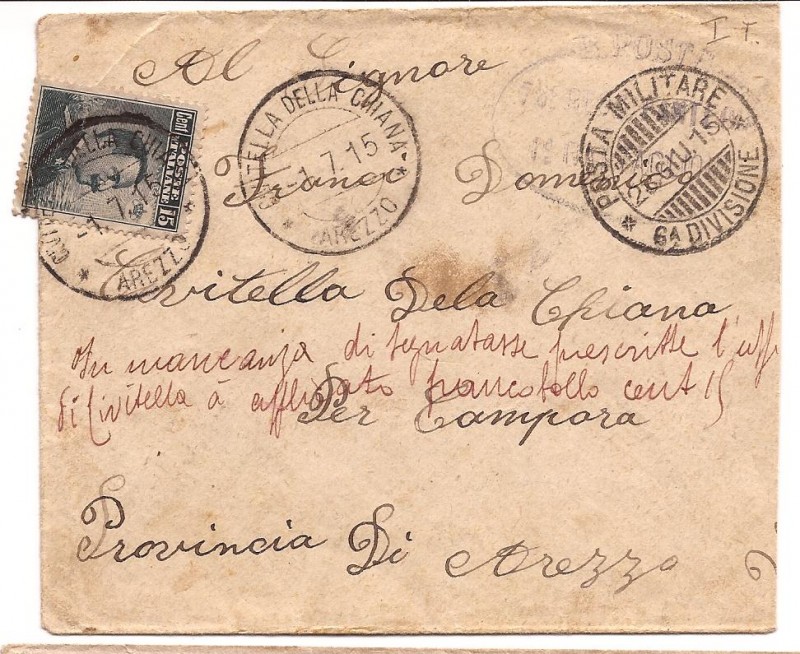 I T.
POSTA
Al Signore
Cent. 15
POSTE
ITALIANE
CIVITELLA DELLA CHIANA
-1.7.15
* AREZZO *
CIVITELLA DELLA CHIANA
-1.7.15
* AREZZO *
* POSTA MILITARE *
26 GIU. 15
6ª DIVISIONE
Franco Domenico
Civitella Dela Chiana
In mancanza di segnatasse prescritte l'uff
di Civitella à applicato francobollo cent 15
Per Campora
Provincia Di Arezzo